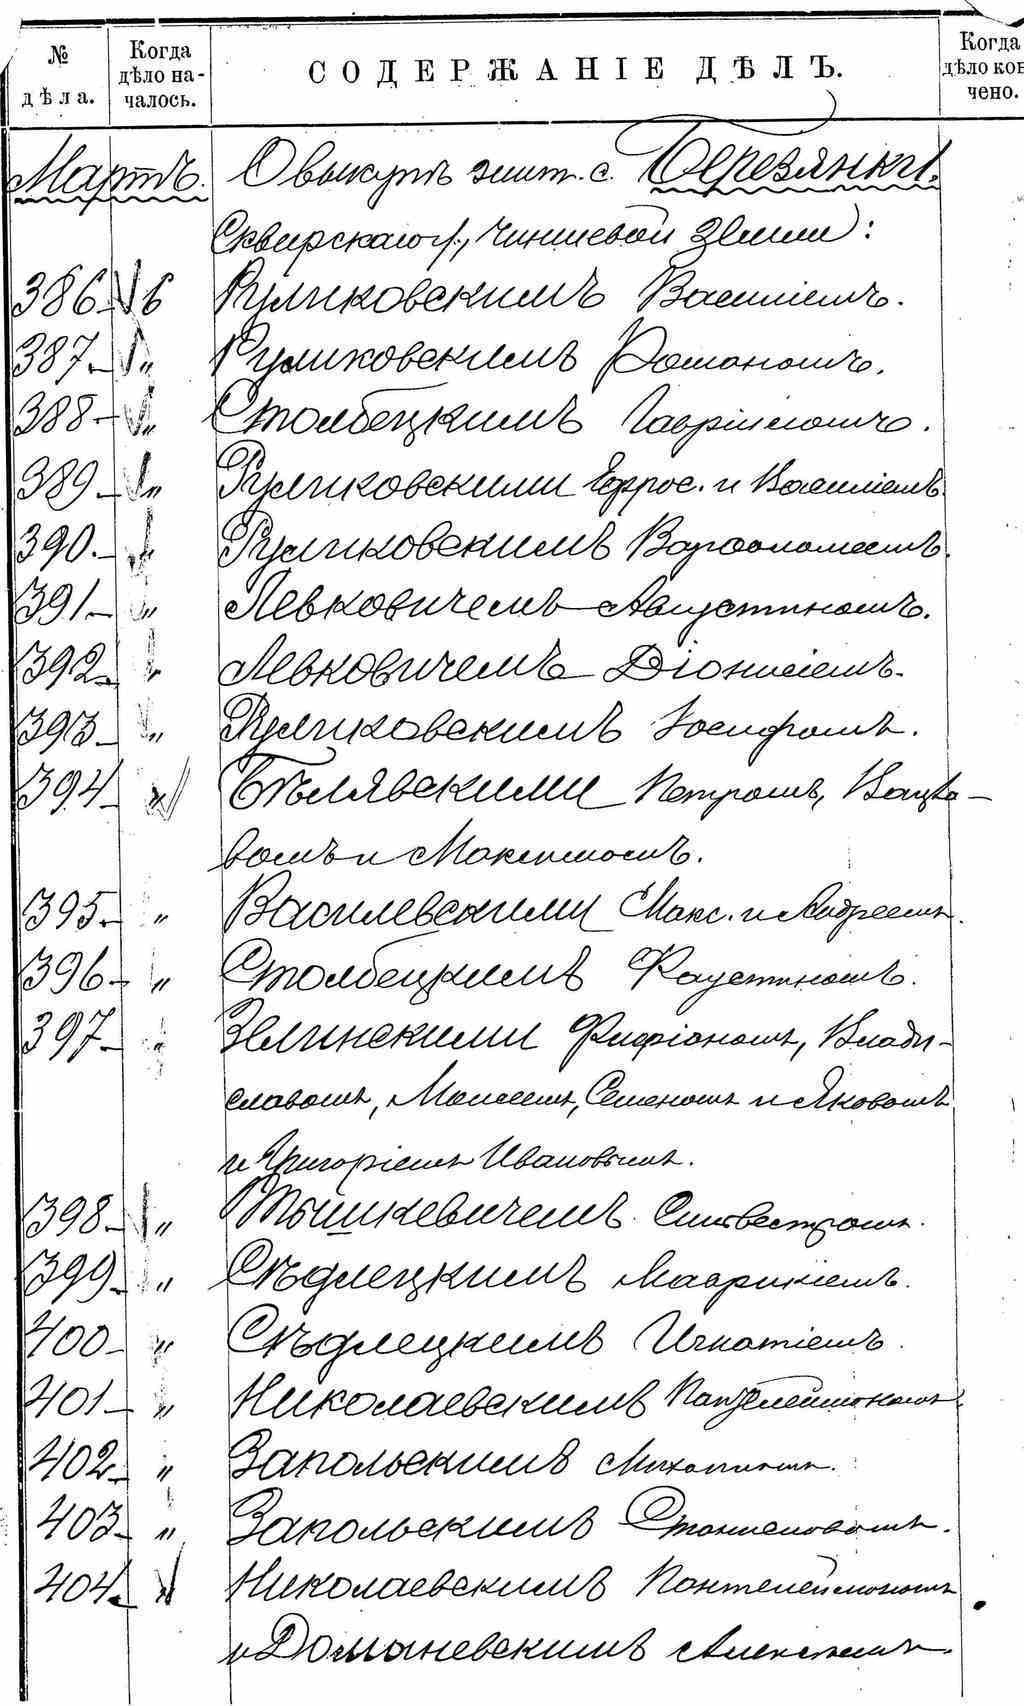 № дѣла. Когда дѣло началось. СОДЕРЖАНІЕ ДѢЛЪ. Когда дѣло кон чено.
Мартъ. О выкупѣ жит. с. Березянки.
Сквирскаго у., чиншевой земли:
386 6 Руликовскимъ Василіемъ.
387 „ Руликовскимъ Романомъ.
388 „ Столбецкимъ Гавріиломъ.
389 „ Руликовскими Ефрос. и Василіемъ
390 „ Руликовскимъ Варфоломеемъ.
391 „ Левковичемъ Августиномъ.
392 „ Левковичемъ Діонисіемъ.
393 „ Руликовскимъ Іосифомъ.
394 „ Бѣлявскими Петромъ, Вацла-
вомъ и Максимомъ.
395 „ Василевскими Макс. и Андреемъ.
396 „ Столбецкимъ Фаустиномъ.
397 „ Зелинскими Влади-
славомъ, Моисеемъ, Семеномъ и Яковомъ
и Григоріемъ Ивановымъ.
398 „ Тышкевичемъ Сильвестромъ.
399 „ Сѣдлецкимъ Маврикіемъ.
400 „ Сѣдлецкимъ Игнатіемъ.
401 „ Николаевскимъ Пантелеймономъ.
402 „ Запольскимъ Михаиломъ.
403 „ Запольскимъ Станиславомъ.
404 „ Николаевскимъ Пантелеймономъ
и Доманевскимъ Алексѣемъ.